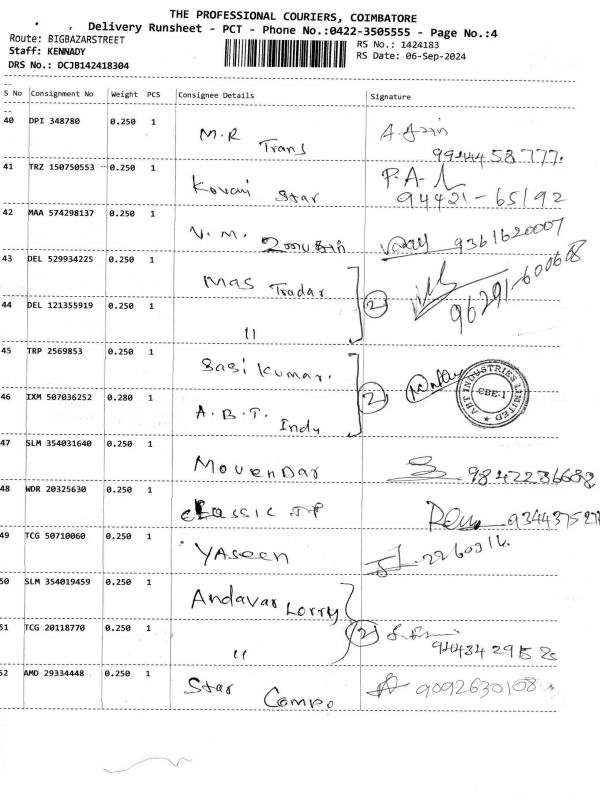 THE PROFESSIONAL COURIERS, COIMBATORE
Delivery Runsheet - PCT - Phone No.:0422-3505555 - Page No.:4
Route: BIGBAZARSTREET
RS No.: 1424183
Staff: KENNADY
RS Date: 06-Sep-2024
DRS No.: DCJB142418304
S No Consignment No Weight PCS Consignee Details Signature
40 DPI 348780 0.250 1 M.R Trans
99444 58777.
41 TRZ 150750553 0.250 1 Kovai Star P.A.
94421-65192
42 MAA 574298137 0.250 1 V.M. 9361620007
43 DEL 529934225 0.250 1 Mas Tradar 2 96291-600668
44 DEL 121355919 0.250 1 "
45 TRP 2569853 0.250 1 Sasi Kumar. 2
46 IXM 507036252 0.280 1 A.B.T. Indy
ABT INDUSTRIES LIMITED
CBE-1
47 SLM 354031640 0.250 1 Movendar 9842286688
48 WDR 20325630 0.250 1 Classic
49 TCG 50710060 0.250 1 Yaseen
50 SLM 354019459 0.250 1 Andavar Lorry
51 TCG 20118770 0.250 1 " 2
52 AMD 29334448 0.250 1 Star Compo 9092630108